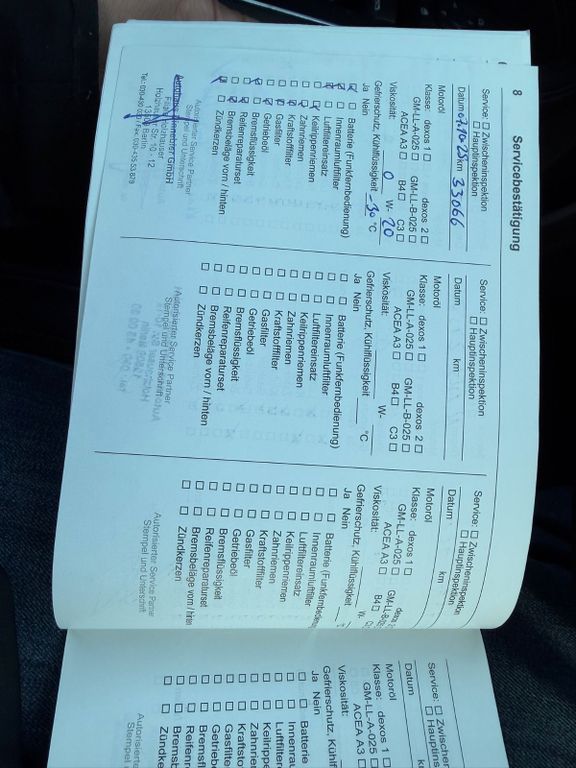 8
Servicebestätigung
Service: □ Zwischeninspektion
□ Hauptinspektion
Datum km 33066
Motoröl
Klasse: dexos 1 □ dexos 2 □
GM-LL-A-025 □ GM-LL-B-025 □
ACEA A3 □ B4 □ C3 □
Viskosität: 0 W- 20
Gefrierschutz, Kühlflüssigkeit -30 °C
Ja Nein
Batterie (Funkfernbedienung)
Innenraumluftfilter
Luftfiltereinsatz
Keilrippenriemen
Zahnriemen
Kraftstofffilter
Gasfilter
Getriebeöl
Bremsflüssigkeit
Reifenreparaturset
Bremsbeläge vorn / hinten
Zündkerzen
Autorisierter Service Partner
Stempel und Unterschrift
GmbH
Holzhauser Str. 10 - 12
Berlin
Service: □ Zwischeninspektion
□ Hauptinspektion
Datum km
Motoröl
Klasse: dexos 1 □ dexos 2 □
GM-LL-A-025 □ GM-LL-B-025 □
ACEA A3 □ B4 □ C3 □
Viskosität: W-
Gefrierschutz, Kühlflüssigkeit °C
Ja Nein
□ □ Batterie (Funkfernbedienung)
□ □ Innenraumluftfilter
□ □ Luftfiltereinsatz
□ □ Keilrippenriemen
□ □ Zahnriemen
□ □ Kraftstofffilter
□ □ Gasfilter
□ □ Getriebeöl
□ □ Bremsflüssigkeit
□ □ Reifenreparaturset
□ □ Bremsbeläge vorn / hinten
□ □ Zündkerzen
Autorisierter Service Partner
Stempel und Unterschrift
Service: □ Zwischeninspektion
□ Hauptinspektion
Datum km
Motoröl
Klasse: dexos 1 □
GM-LL-A-025 □
ACEA A3 □ B4 □
Viskosität: W-
Gefrierschutz, Kühlflüssigkeit
Ja Nein
□ □ Batterie (Funkfernbedienung
□ □ Innenraumluftfilter
□ □ Luftfiltereinsatz
□ □ Keilrippenriemen
□ □ Zahnriemen
□ □ Kraftstofffilter
□ □ Gasfilter
□ □ Getriebeöl
□ □ Bremsflüssigkeit
□ □ Reifenreparaturset
□ □ Bremsbeläge vorn / hinten
□ □ Zündkerzen
Autorisierter Service Partner
Stempel und Unterschrift
Service: □ Zwischen
□ Hauptins
Datum
Motoröl
Klasse: dexos 1 □
GM-LL-A-025 □
ACEA A3 □
Viskosität:
Gefrierschutz, Kühl
Ja Nein
□ □ Batterie
□ □ Innenrau
□ □ Luftfilter
□ □ Keilrippe
□ □ Zahnrie
□ □ Kraftsto
□ □ Gasfilte
□ □ Getrieb
□ □ Bremsf
□ □ Reifen
□ □ Bremsb
□ □ Zündke
Autorisie
Stempel